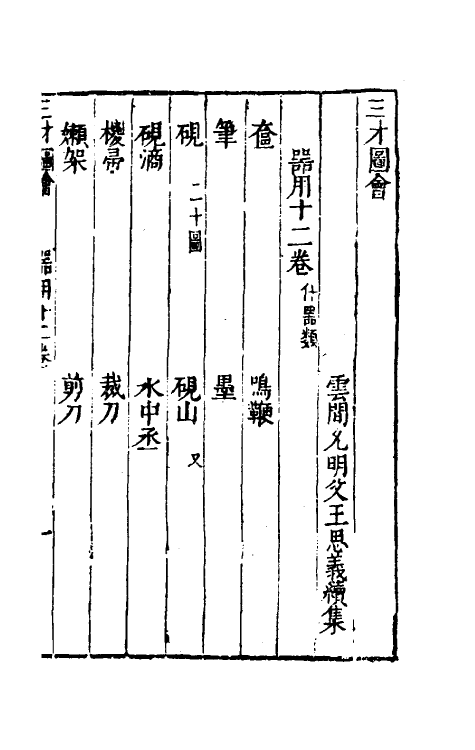 三才圖會
雲間允明父王思義續集
器用十二卷 什器類
奩 鳴鞭
筆 墨
硯 二十圖 硯山 又
硯滴 水中丞
椶帚 裁刀
嬾架 剪刀
三才圖會 器用十二卷 一